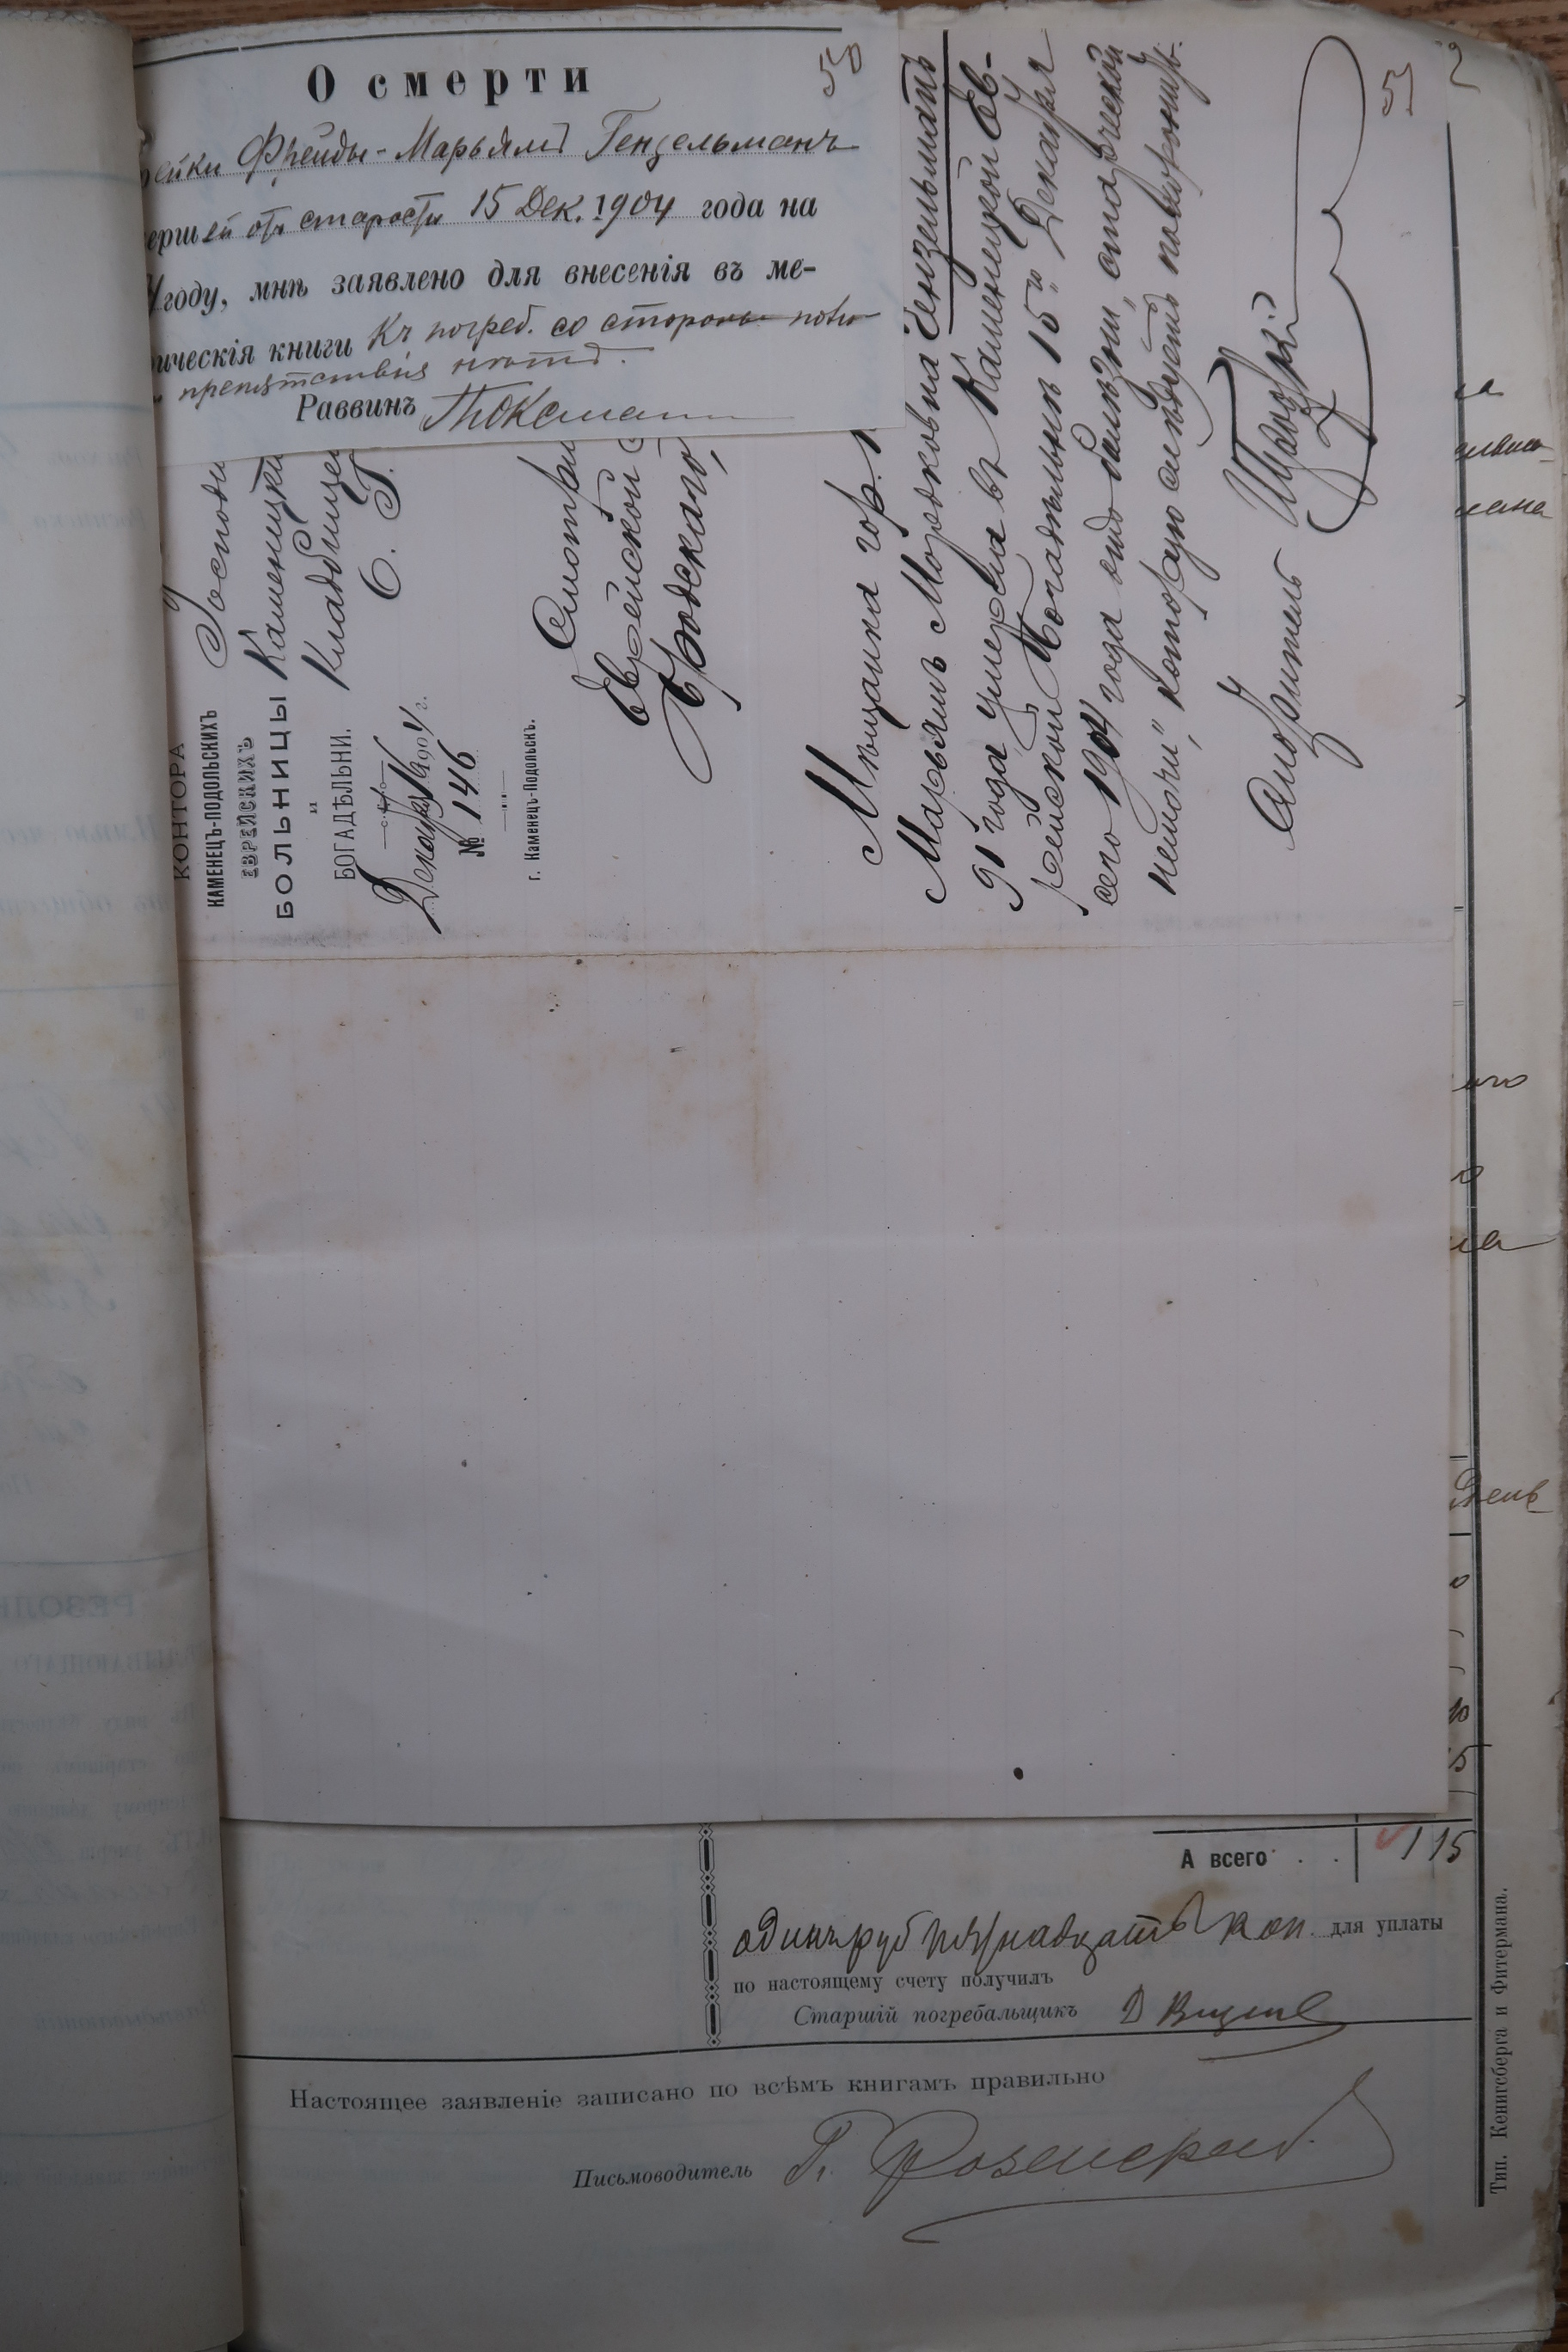 50
О смерти
ейки Фрейды-Марьямъ Гензельманъ
ершей отъ старости 15 Дек. 1904 года на
году, мнѣ заявлено для внесенія въ ме-
рическія книги Къ погреб. со стороны
препятствія нѣтъ.
Раввинъ
51
КОНТОРА
КАМЕНЕЦЪ-ПОДОЛЬСКИХЪ
ЕВРЕЙСКИХЪ
БОЛЬНИЦЫ
и
БОГАДѢЛЬНИ.
Декабря 16 1904 г.
№ 146
г. Каменецъ-Подольскъ.
Господи
Каменецки
Кладбище
С. Г.
Смотри
Еврейской
Бродскаго,
Мѣщанка гор.
Марьямъ Мордковна Гензельманъ
91 года умерла въ Каменецкой Ев-
рейской Богадѣльнѣ 15го Декабря
сего 1904 года отъ болѣзни „старческой
немочи", которую слѣдуетъ похоронить.
Смотритель
2
ла
мана
ого
о
ла
день
о
10
15
А всего . . 1 15
одинъ руб пятнадцать коп. для уплаты
по настоящему счету получилъ
Старшій погребальщикъ Д
Настоящее заявленіе записано по всѣмъ книгамъ правильно
Письмоводитель
Тип. Кенигсберга и Фитермана.